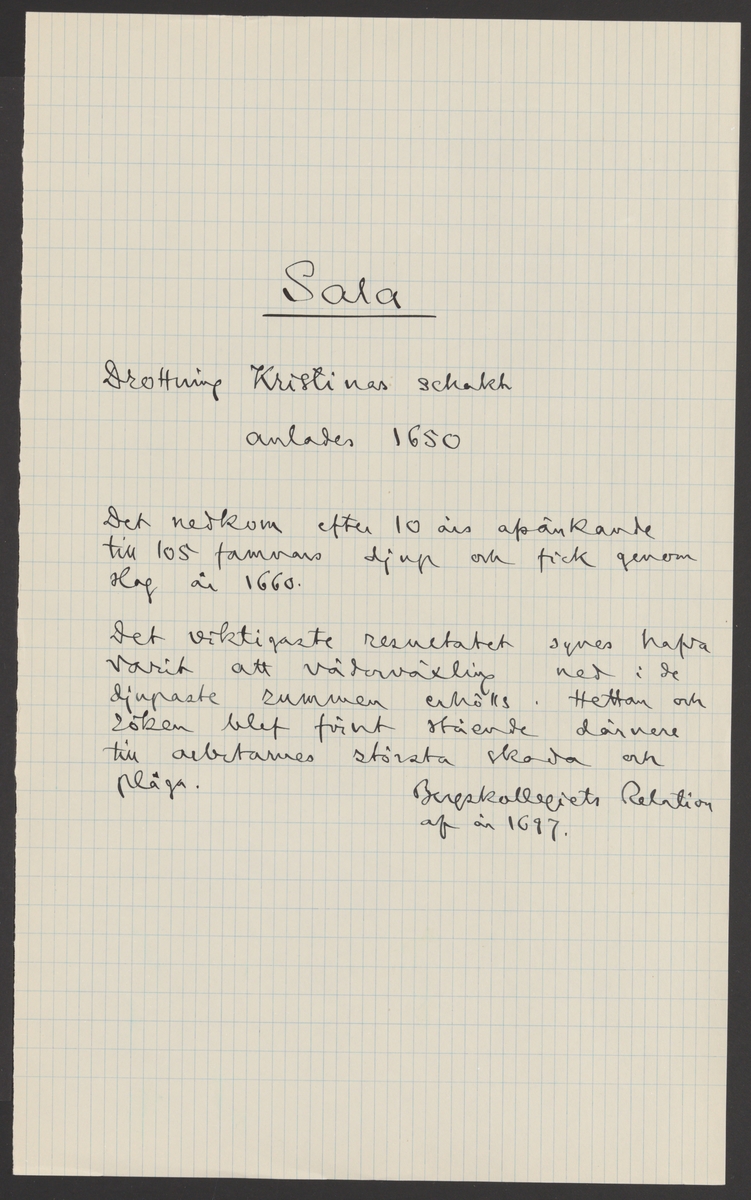 Sala
Drottning Kristinas schakt
anlades 1650
Det nedkom efter 10 års afsänkande
till 105 famnars djup och fick genom
slag år 1660.
Det viktigaste resultatet synes hafva
varit att väderväxling ned i de
djupaste rummen erhölls. Hettan och
röken blef förut stående därnere
till arbetarnes största skada och
plåga.
Bergskollegiets Relation
af år 1697.